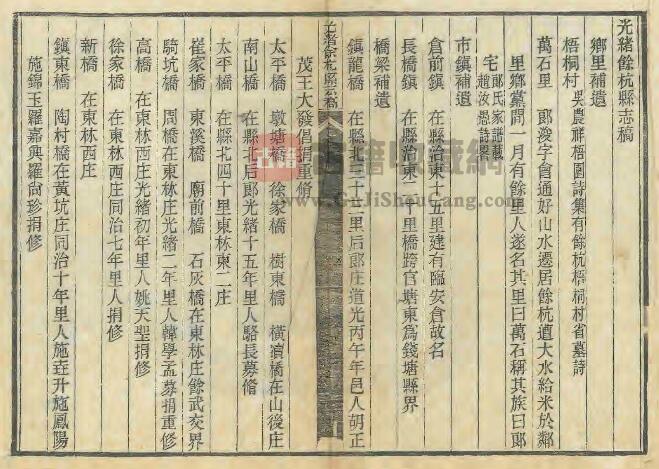 光緒餘杭縣志稿
鄉里補遺
梧桐村 吳農祥梧園詩集有餘杭梧桐村省墓詩
萬石里 郎浚字會通好山水遷居餘杭道大水給米於鄰
里鄉黨間一月有餘里人遂名其里曰萬石稱其族曰郎
宅 郎氏家譜載
趙汝愚詩畧
市鎮補遺
倉前鎮 在縣治東十五里建有臨安倉故名
長橋鎮 在縣治東二十里橋跨官塘東爲錢塘縣界
橋梁補遺
鎮龍橋 在縣北三十五里后郎庄道光丙午年邑人胡正
茂王大發倡捐重脩
太平橋 墩塘橋 徐家橋 樹東橋 橫瀆橋在山後庄
南山橋 在縣北后郎光緒十五年里人駱長募脩
太平橋 在縣北四十里東林東二庄
崔家橋 東溪橋 廟前橋 石灰橋在東林庄餘武交界
騎坑橋 周橋在東林庄光緒二年里人韓學孟募捐重修
高橋 在東林西庄光緒初年里人姚天聖捐修
徐家橋 在東林西庄同治七年里人捐修
新橋 在東林西庄
鎮東橋 陶村橋在黃坑庄同治十年里人施垚升施鳳陽
施錦玉羅嘉興羅尚珍捐修
www.GuJiShouCang.com